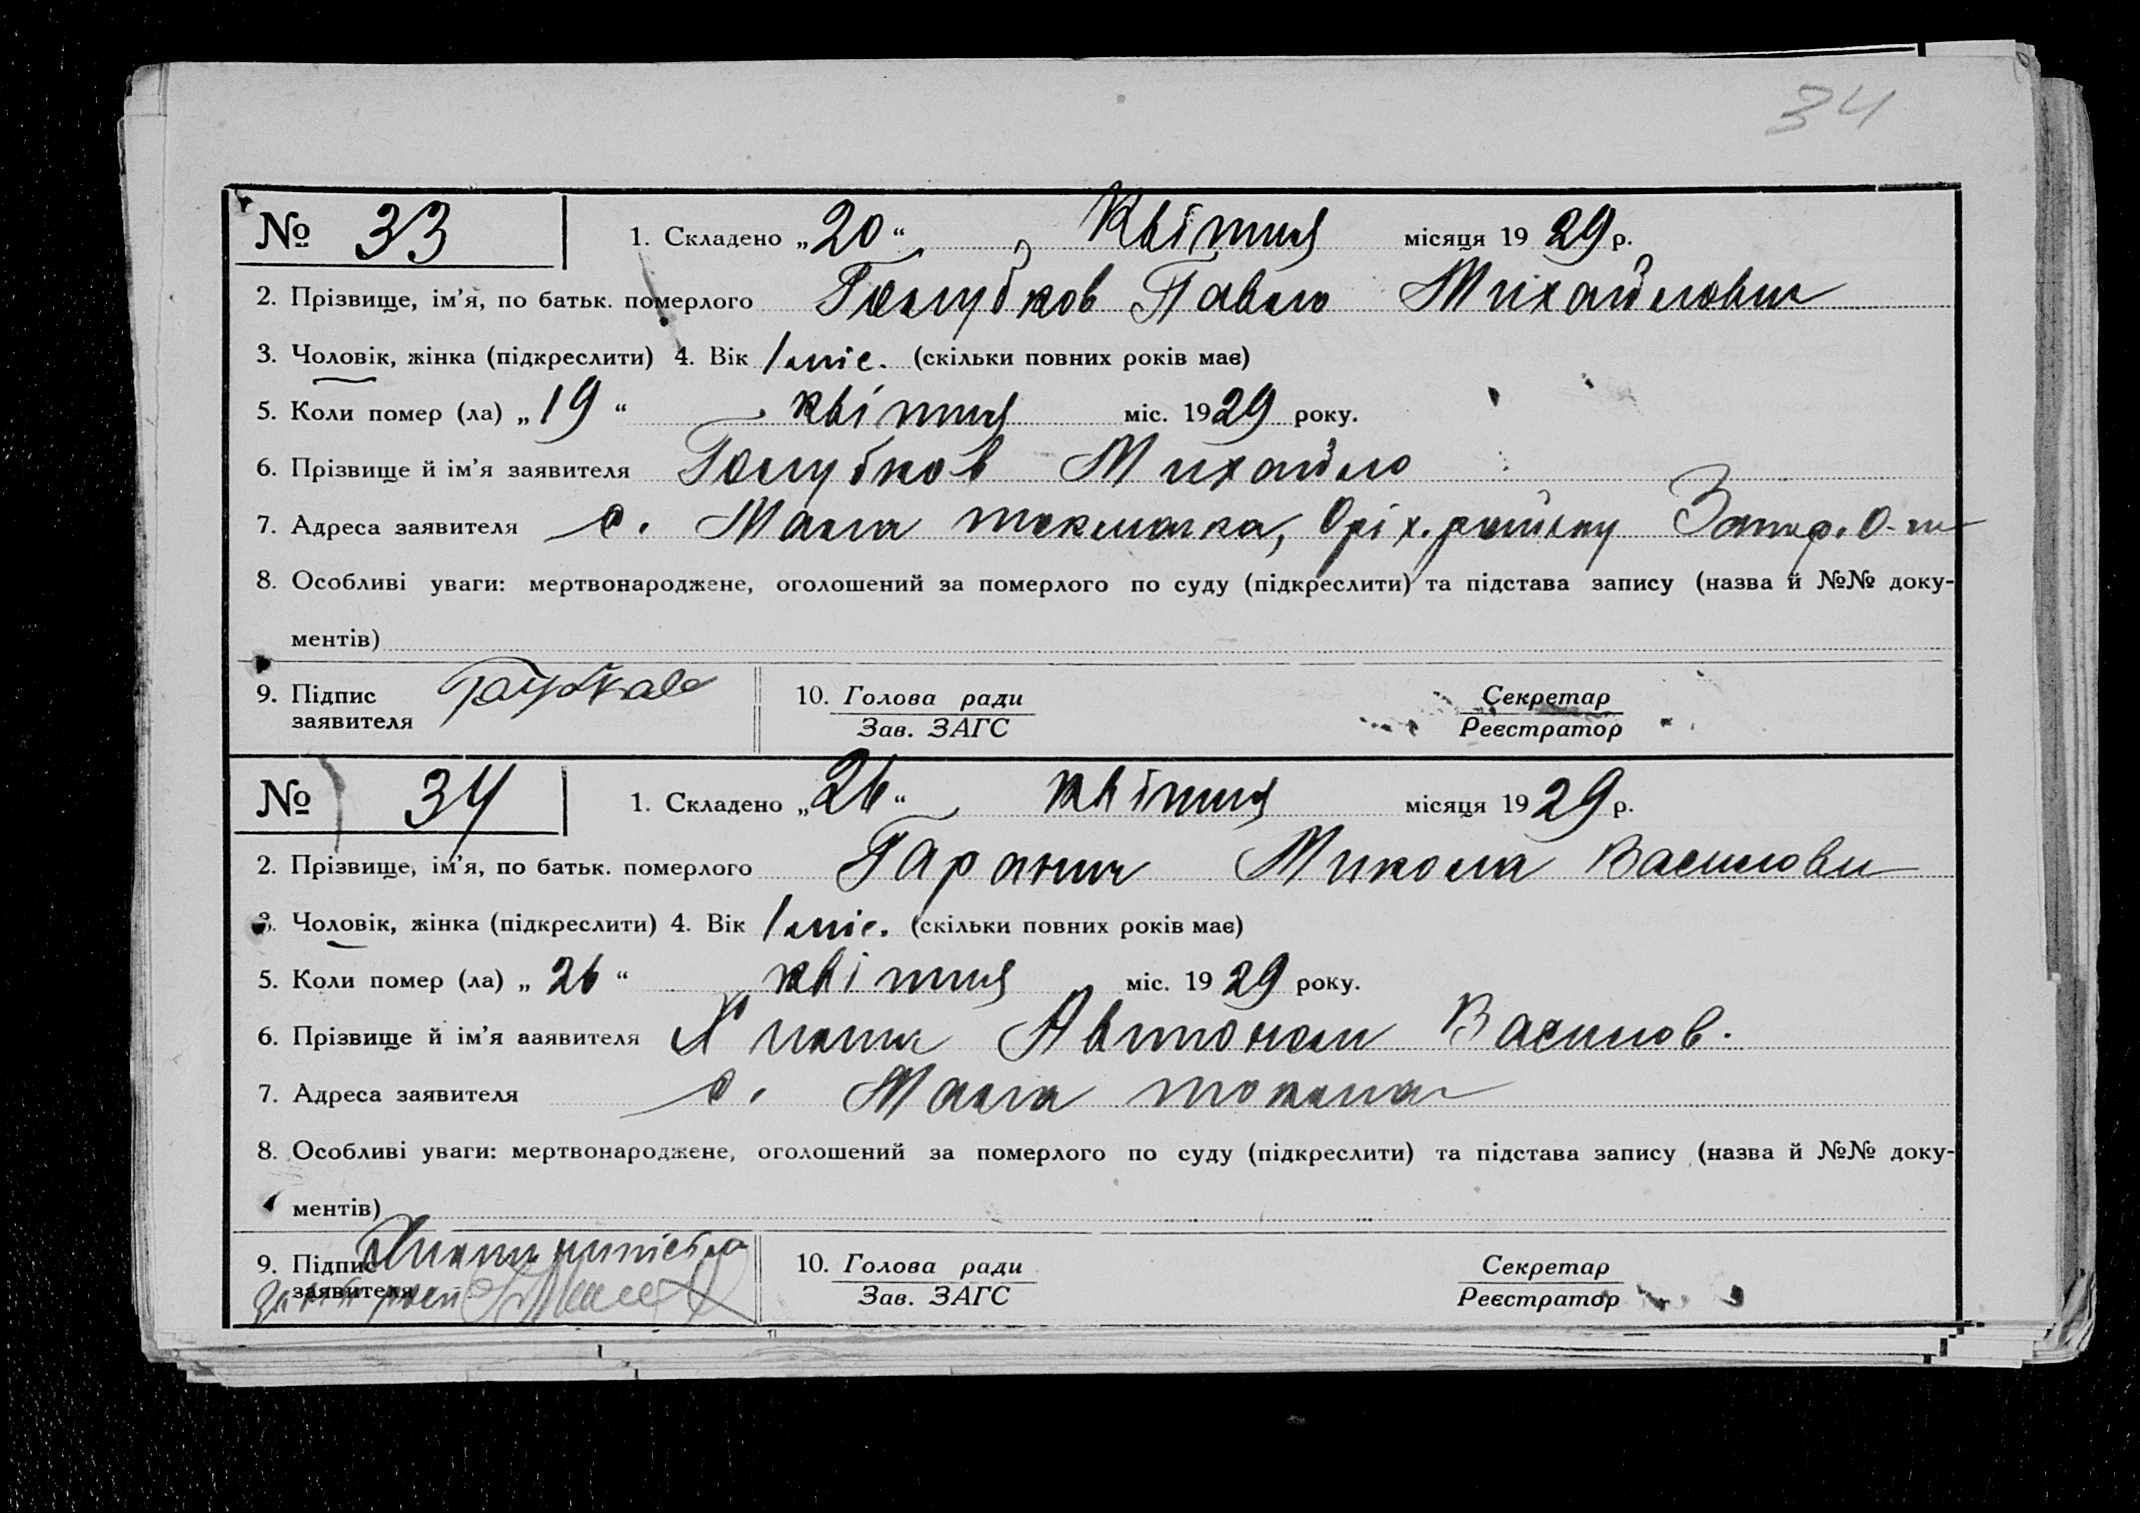 34
№ 33 1. Складено „20“ квітня місяця 1929 р.
2. Прізвище, ім’я, по батьк. померлого Голубков Павло Михайлович
3. Чоловік, жінка (підкреслити) 4. Вік 1 міс. (скільки повних років має)
5. Коли помер (ла) „19“ квітня міс. 1929 року.
6. Прізвище й ім’я заявителя Голубков Михайло
7. Адреса заявителя с. Мала токмачка, Оріх. району Запор. О-ги
8. Особливі уваги: мертвонароджене, оголошений за померлого по суду (підкреслити) та підстава запису (назва й №№ доку-
ментів)
9. Підпис заявителя
10. Голова ради
Зав. ЗАГС
Секретар
Реєстратор
№ 34 1. Складено „26“ квітня місяця 1929 р.
2. Прізвище, ім’я, по батьк. померлого Гаранич Микола Василови
3. Чоловік, жінка (підкреслити) 4. Вік 1 міс. (скільки повних років має)
5. Коли помер (ла) „26“ квітня міс. 1929 року.
6. Прізвище й ім’я заявителя Автоном Васильов.
7. Адреса заявителя с. Мала токмач
8. Особливі уваги: мертвонароджене, оголошений за померлого по суду (підкреслити) та підстава запису (назва й №№ доку-
ментів)
9. Підпис
заявителя
10. Голова ради
Зав. ЗАГС
Секретар
Реєстратор